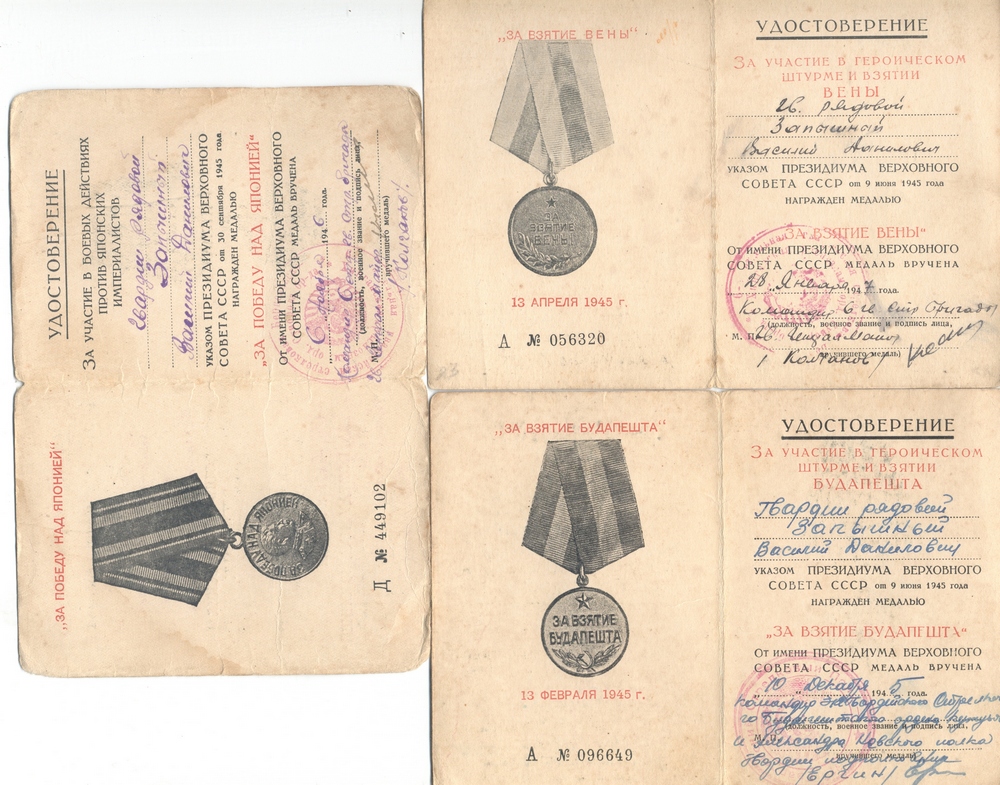 УДОСТОВЕРЕНИЕ
ЗА УЧАСТИЕ В БОЕВЫХ ДЕЙСТВИЯХ
ПРОТИВ ЯПОНСКИХ
ИМПЕРИАЛИСТОВ
Гвардии рядовой
Запышный
Василий Данилович
УКАЗОМ ПРЕЗИДИУМА ВЕРХОВНОГО
СОВЕТА СССР от 30 сентября 1945 года
НАГРАЖДЕН МЕДАЛЬЮ
"ЗА ПОБЕДУ НАД ЯПОНИЕЙ"
ОТ ИМЕНИ ПРЕЗИДИУМА ВЕРХОВНОГО
СОВЕТА СССР МЕДАЛЬ ВРУЧЕНА
1946 года
(должность, военное звание и подпись лица,
М.П.
вручившего медаль)
"ЗА ПОБЕДУ НАД ЯПОНИЕЙ"
ЗА ПОБЕДУ НАД ЯПОНИЕЙ
Д № 449102
„ЗА ВЗЯТИЕ ВЕНЫ"
ЗА
ВЗЯТИЕ
ВЕНЫ
13 АПРЕЛЯ 1945 г.
А № 056320
УДОСТОВЕРЕНИЕ
ЗА УЧАСТИЕ В ГЕРОИЧЕСКОМ
ШТУРМЕ И ВЗЯТИИ
ВЕНЫ
гв. рядовой
Запышный
Василий Данилович
УКАЗОМ ПРЕЗИДИУМА ВЕРХОВНОГО
СОВЕТА СССР от 9 июня 1945 года
НАГРАЖДЕН МЕДАЛЬЮ
„ЗА ВЗЯТИЕ ВЕНЫ"
ОТ ИМЕНИ ПРЕЗИДИУМА ВЕРХОВНОГО
СОВЕТА СССР МЕДАЛЬ ВРУЧЕНА
28 Января 1947 года.
Командир
(должность, военное звание и подпись лица,
М. П.
вручившего медаль)
„ЗА ВЗЯТИЕ БУДАПЕШТА"
ЗА ВЗЯТИЕ
БУДАПЕШТА
13 ФЕВРАЛЯ 1945 г.
А № 096649
УДОСТОВЕРЕНИЕ
ЗА УЧАСТИЕ В ГЕРОИЧЕСКОМ
ШТУРМЕ И ВЗЯТИИ
БУДАПЕШТА
Гвардии рядовой
Запышный
Василий Данилович
УКАЗОМ ПРЕЗИДИУМА ВЕРХОВНОГО
СОВЕТА СССР от 9 июня 1945 года
НАГРАЖДЕН МЕДАЛЬЮ
„ЗА ВЗЯТИЕ БУДАПЕШТА"
ОТ ИМЕНИ ПРЕЗИДИУМА ВЕРХОВНОГО
СОВЕТА СССР МЕДАЛЬ ВРУЧЕНА
10 Декабря 1945 года.
Командир
(должность, военное звание и подпись лица,
М. П.
и Александра Невского полка
вручившего медаль)
Гвардии
/ЕРГИН/